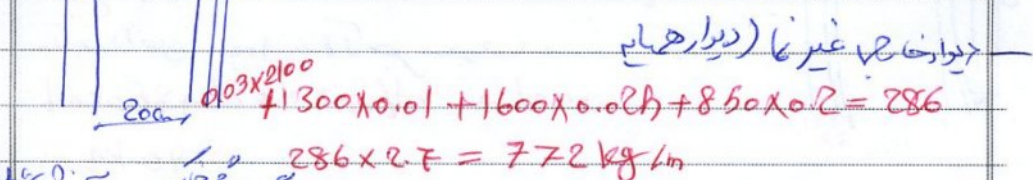 – دیوار خارجی غیر نما (دیوار همسایه
0.03×2100
20cm
+1300×0.01+1600×0.025+850×0.2=286
286×2.7=772 kg/m